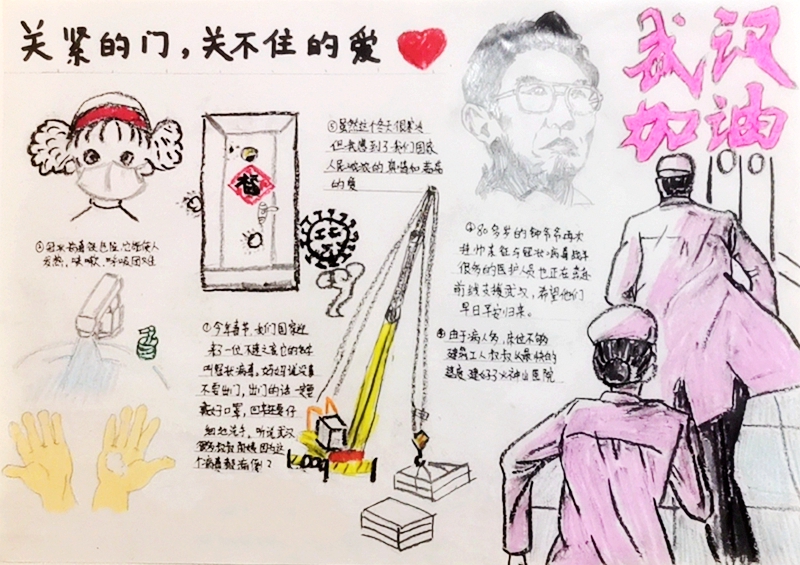 关紧的门，关不住的爱
武汉
加油
春
⑤虽然这个冬天很寒冷
但我感到了我们国家
人民浓浓的真情和满满
的爱
发热，咳嗽，呼吸困难
①今年春节，我们国家迎
来了一位不速之客它的名字
叫冠状病毒，妈妈说没事
不要出门，出门的话一定要
戴好口罩，回来还要仔
细地洗手，听说武汉
个病毒都病倒了
④80多岁的钟爷爷再次
挂帅亲征与冠状病毒战斗
很多的医护人员也正在奔赴
前线支援武汉，希望他们
早日平安归来。
由于病人多，床位不够
建筑工人叔叔以最快的
速度建好了火神山医院